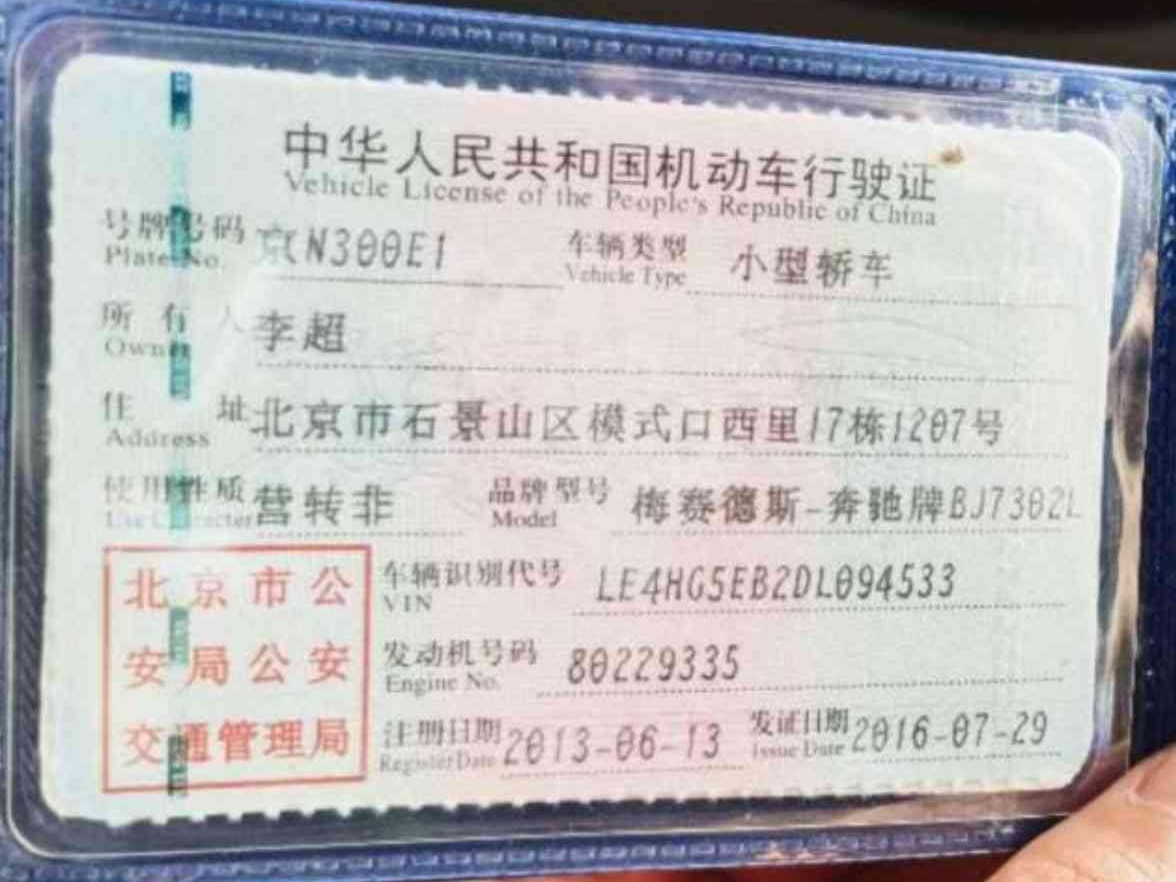 中华人民共和国机动车行驶证
Vehicle License of the People's Republic of China
号牌号码 京N300E1 车辆类型 小型轿车
Plate No. Vehicle Type
所有人 李超
Owner
住址 北京市石景山区模式口西里17栋1207号
Address
使用性质 营转非 品牌型号 梅赛德斯-奔驰牌BJ7302L
Use Character Model
北京市公
安局公安
交通管理局
车辆识别代号 LE4HG5EB2DL094533
VIN
发动机号码 80229335
Engine No.
注册日期 2013-06-13 发证日期 2016-07-29
Register Date Issue Date